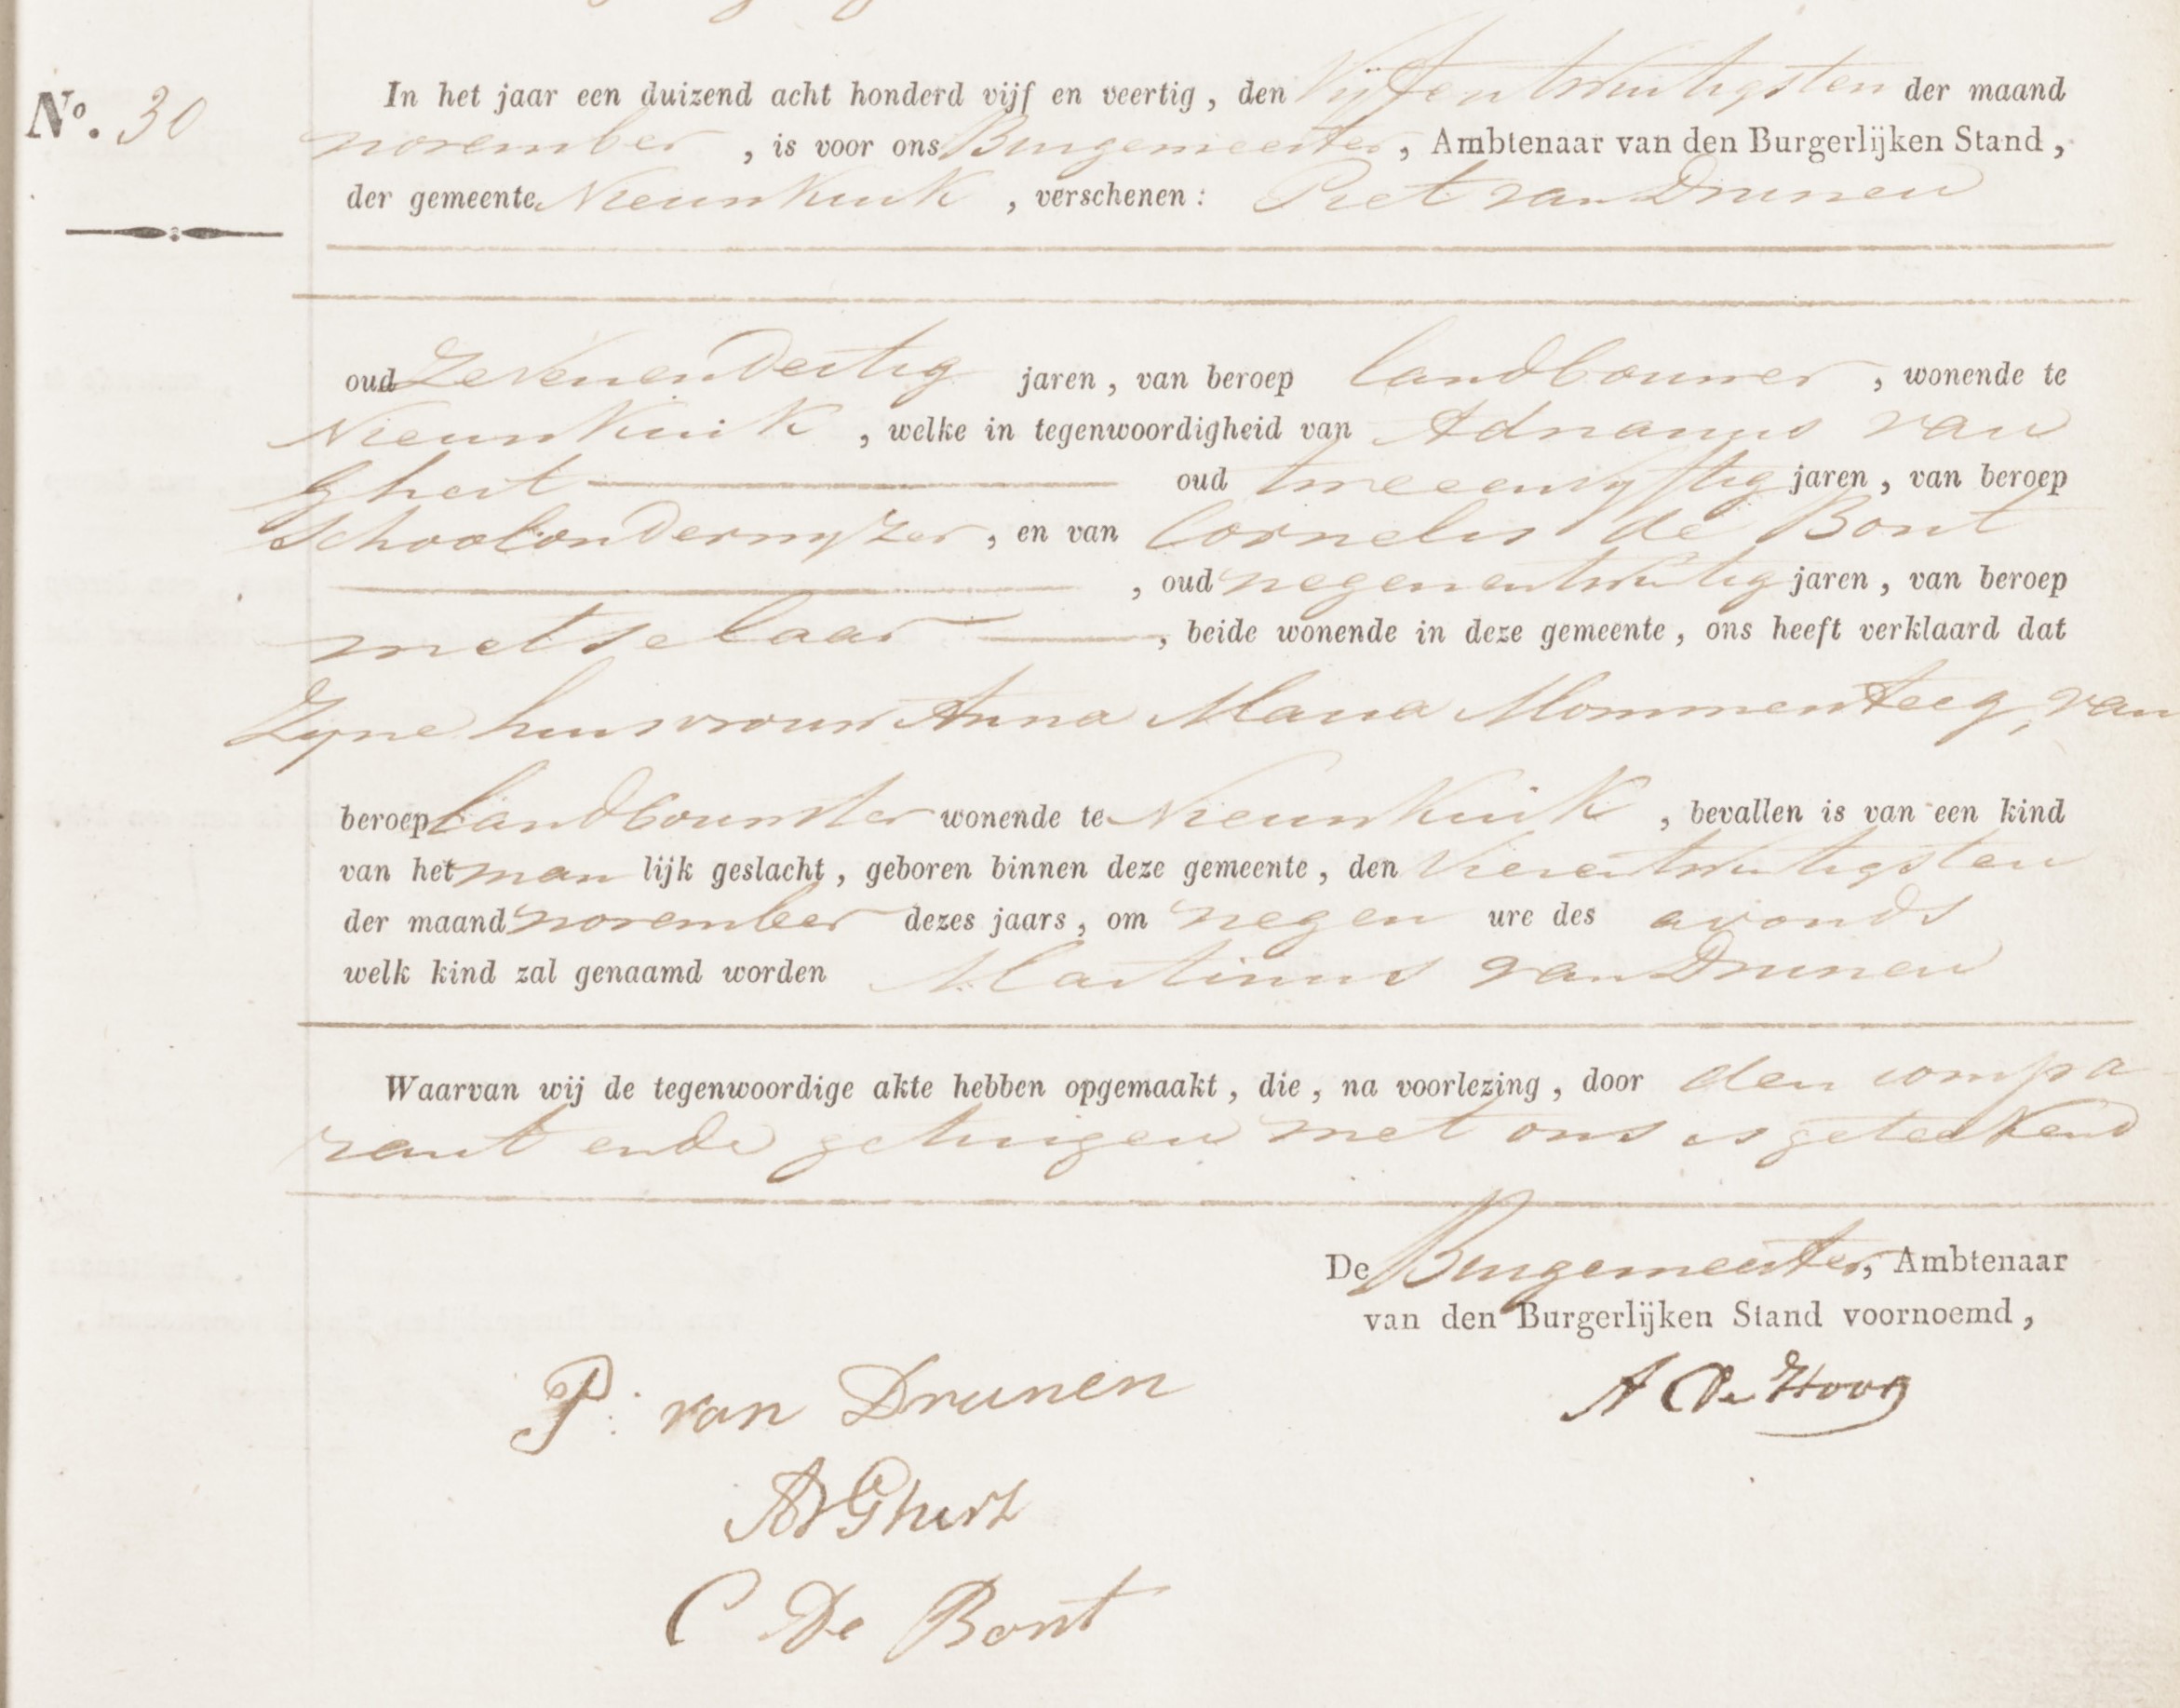 No. 30
In het jaar een duizend acht honderd vijf en veertig, den Vijfentwintigsten der maand
november, is voor ons Burgemeester, Ambtenaar van den Burgerlijken Stand,
der gemeente Nieuwkuik, verschenen: Piet van Drunen
oud Zevenendertig jaren, van beroep landbouwer, wonende te
Nieuwkuik, welke in tegenwoordigheid van Adrianus van
Ghert oud tweeenvyftig jaren, van beroep
Schoolonderwyzer, en van Cornelis de Bont
, oud negenentwintig jaren, van beroep
metselaar, beide wonende in deze gemeente, ons heeft verklaard dat
Zyne huisvrouw Anna Maria Mommersteeg, van
beroep landbouwster wonende te Nieuwkuik, bevallen is van een kind
van het man lijk geslacht, geboren binnen deze gemeente, den Vierentwintigsten
der maand november dezes jaars, om negen ure des avonds
welk kind zal genaamd worden Martinus van Drunen
Waarvan wij de tegenwoordige akte hebben opgemaakt, die, na voorlezing, door den compa
rant en de getuigen met ons is geteekend
De Burgemeester, Ambtenaar
van den Burgerlijken Stand voornoemd,
P: van Drunen
A De Hoog
AvGhert
C De Bont